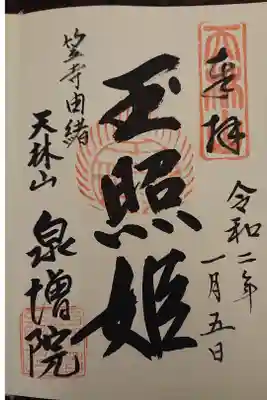 奉拝
令和二年
一月五日
玉照姫
笠寺由緒
天林山
泉増院